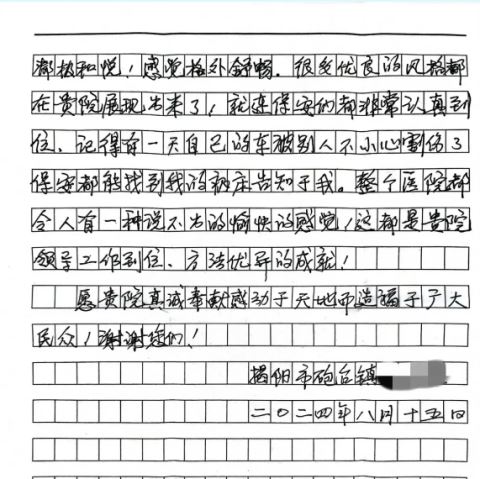 都极和悦！感觉格外舒畅．很多优良的风格都
在贵院展现出来了！就连保安们都非常认真到
位、记得有一天自己的车被别人不小心剐伤了
保安都能找到我的病床告知于我。整个医院都
令人有一种说不出的愉快的感觉！这都是贵院
领导工作到位、方法优异的成就！
愿贵院真诚奉献感动于天地而造福于广大
民众！谢谢您们！
揭阳市砲台镇
二〇二四年八月十五日